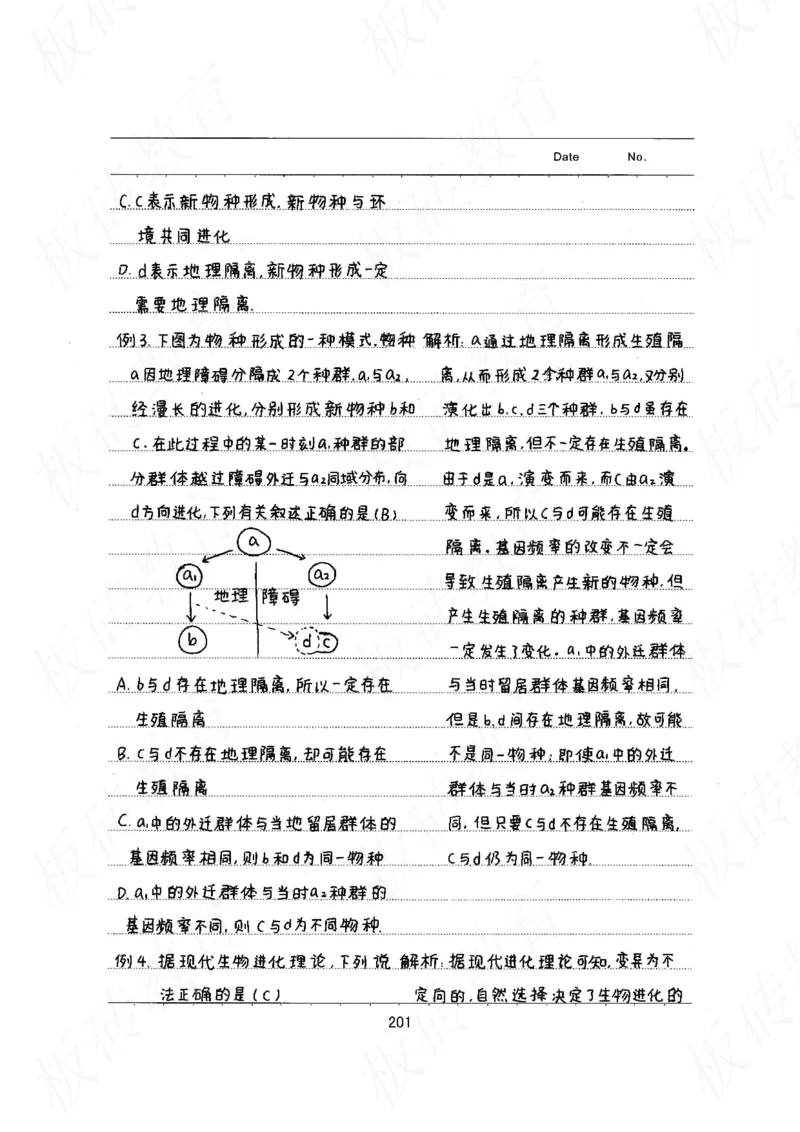 Date No.
C.C表示新物种形成.新物种与环
境共同进化
D. d表示地理隔离,新物种形成一定
需要地理隔离.
例3.下图为物种形成的一种模式.物种
a因地理障碍分隔成2个种群,a₁与a₂,
经漫长的进化,分别形成新物种b和
c.在此过程中的某一时刻a₁种群的部
分群体越过障碍外迁与a₂同域分布,向
d方向进化,下列有关叙述正确的是(B)
a
a₁ a₂
地理 障碍
b d c
A. b与d存在地理隔离,所以一定存在
生殖隔离
B. C与d不存在地理隔离,却可能存在
生殖隔离
C. a₁中的外迁群体与当地留居群体的
基因频率相同,则b和d为同一物种
D. a₁中的外迁群体与当时a₂种群的
基因频率不同,则C与d为不同物种.
解析:a通过地理隔离形成生殖隔
离,从而形成2个种群a₁与a₂,又分别
演化出b.c.d三个种群.b与d虽存在
地理隔离,但不一定存在生殖隔离。
由于d是a₁演变而来,而C由a₂演
变而来,所以C与d可能存在生殖
隔离.基因频率的改变不一定会
导致生殖隔离产生新的物种,但
产生生殖隔离的种群,基因频率
一定发生了变化.a₁中的外迁群体
与当时留居群体基因频率相同,
但是b,d间存在地理隔离,故可能
不是同一物种;即使a₁中的外迁
群体与当时a₂种群基因频率不
同,但只要C与d不存在生殖隔离,
C与d仍为同一物种.
例4.据现代生物进化理论,下列说
法正确的是(C)
解析:据现代进化理论可知,变异为不
定向的,自然选择决定了生物进化的
201
板砖教育